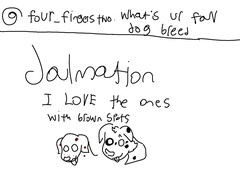 @ four_fingers two. what's ur fav
dog breed
Dalmation
I LOVE the ones
with brown spots